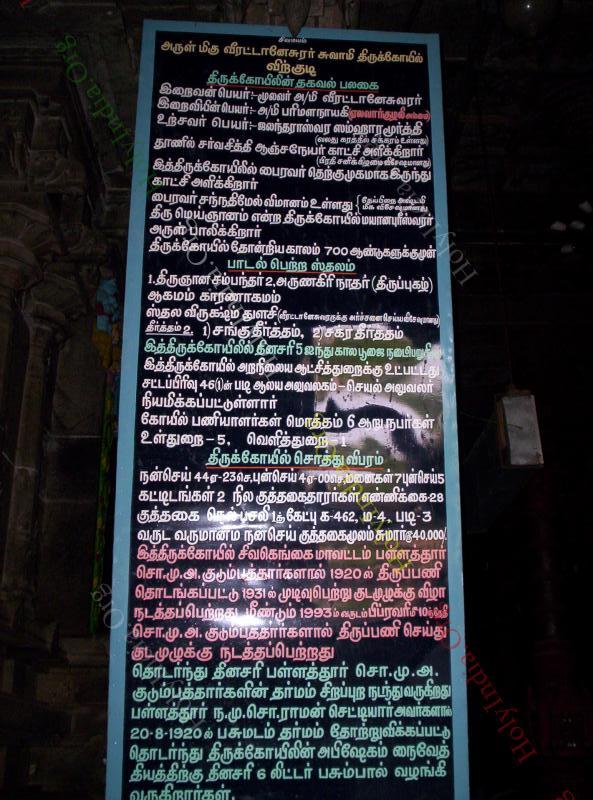 சிவமயம்
அருள் மிகு வீரட்டானேசுரர் சுவாமி திருக்கோயில்
விற்குடி
திருக்கோயிலின் தகவல் பலகை
இறைவன் பெயர்:- மூலவர் அ/மி வீரட்டானேசுரர்
இறைவியின் பெயர்:- அ/மி பரிமளநாயகி (ஏலவார்குழலி அம்மை)
உற்சவர் பெயர்:- ஜலந்தராஸ்வர ஸம்ஹாரமூர்த்தி
(வலது கரத்தில் சக்கரம் உள்ளது)
தூணில் சர்வசித்தி ஆஞ்சநேயர் காட்சி அளிக்கிறார்
(பிரதி சனிக்கிழமை விசேஷமானது)
இத்திருக்கோயிலில் பைரவர் தெற்குமுகமாகஇருந்து
காட்சி அளிக்கிறார்
பைரவர் சந்நதிமேல் விமானம் உள்ளது (தேய்பிறை அஷ்டமி
மிக விசேஷமானது)
திரு மெய்ஞானம் என்ற திருக்கோயில் மயானபுரீஸ்வரர்
அருள் பாலிக்கிறார்
திருக்கோயில் தோன்றிய காலம் 700 ஆண்டுகளுக்குமுன்
பாடல் பெற்ற ஸ்தலம்
1.திருஞான சம்பந்தர் 2, அருணகிரி நாதர் (திருப்புகழ்)
ஆகமம் காரணாகமம்
ஸ்தல விருக்ஷம் துளசி (வீரட்டானேசுவரருக்கு அர்ச்சனை செய்ய விசேஷமானது)
தீர்த்தம் 2. 1) சங்கு தீர்த்தம், 2) சக்ர தீர்த்தம்
இத்திருக்கோயிலில் தினசரி 5 ஐந்து கால பூஜை நடைபெறுகிறது
இத்திருக்கோயில் அறநிலைய ஆட்சித்துறைக்கு உட்பட்டது
சட்டப்பிரிவு 46(i)ன் படி ஆலய அலுவலகம் - செயல் அலுவலர்
நியமிக்கப்பட்டுள்ளார்
கோயில் பணியாளர்கள் மொத்தம் 6 ஆறு நபர்கள்
உள்துறை - 5, வெளித்துறை - 1
திருக்கோயில் சொத்து விபரம்
நன்செய் 44ஏ-23செ,புன்செய் 4ஏ-00செ,மனைகள் 7 புன்செய் 5
கட்டிடங்கள் 2 நில குத்தகைதாரர்கள் எண்ணிக்கை-28
குத்தகை நெல் பசலி 1க்கு கேட்பு க-462, ம-4, படி-3
வருட வருமானம் நன்செய் குத்தகைமூலம் சுமார் ரூ 40,000/
இத்திருக்கோயில் சிவகெங்கை மாவட்டம் பள்ளத்தூர்
சொ.மு.அ. குடும்பத்தார்களால் 1920ல் திருப்பணி
தொடங்கப்பட்டு 1931ல் முடிவுபெற்று குடமுழுக்கு விழா
நடத்தப்பெற்றது. மீண்டும் 1993ம் வருடம் பிப்ரவரி
சொ.மு.அ. குடும்பத்தார்களால் திருப்பணி செய்து
குடமுழுக்கு நடத்தப்பெற்றது
தொடர்ந்து தினசரி பள்ளத்தூர் சொ.மு.அ.
குடும்பத்தார்களின் தர்மம் சிறப்புற நடந்துவருகிறது
பள்ளத்தூர் ந.மு.சொ.ராமன் செட்டியார் அவர்களால்
20-8-1920ல் பசுமடம் தர்மம் தோற்றுவிக்கப்பட்டு
தொடர்ந்து திருக்கோயிலின் அபிஷேகம் நைவேத்
தியத்திற்கு தினசரி 6 லிட்டர் பசும்பால் வழங்கி
வருகிறார்கள்.
HolyIndia.Org